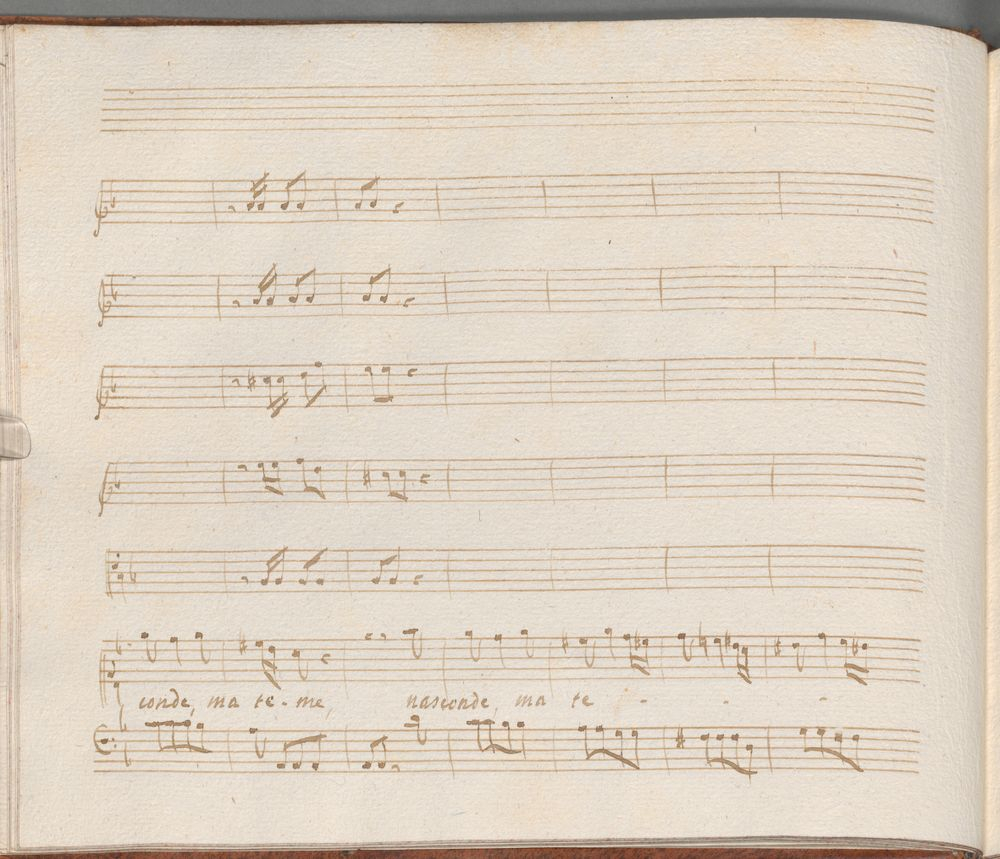 conde, ma te-me, nasconde, ma te - - -